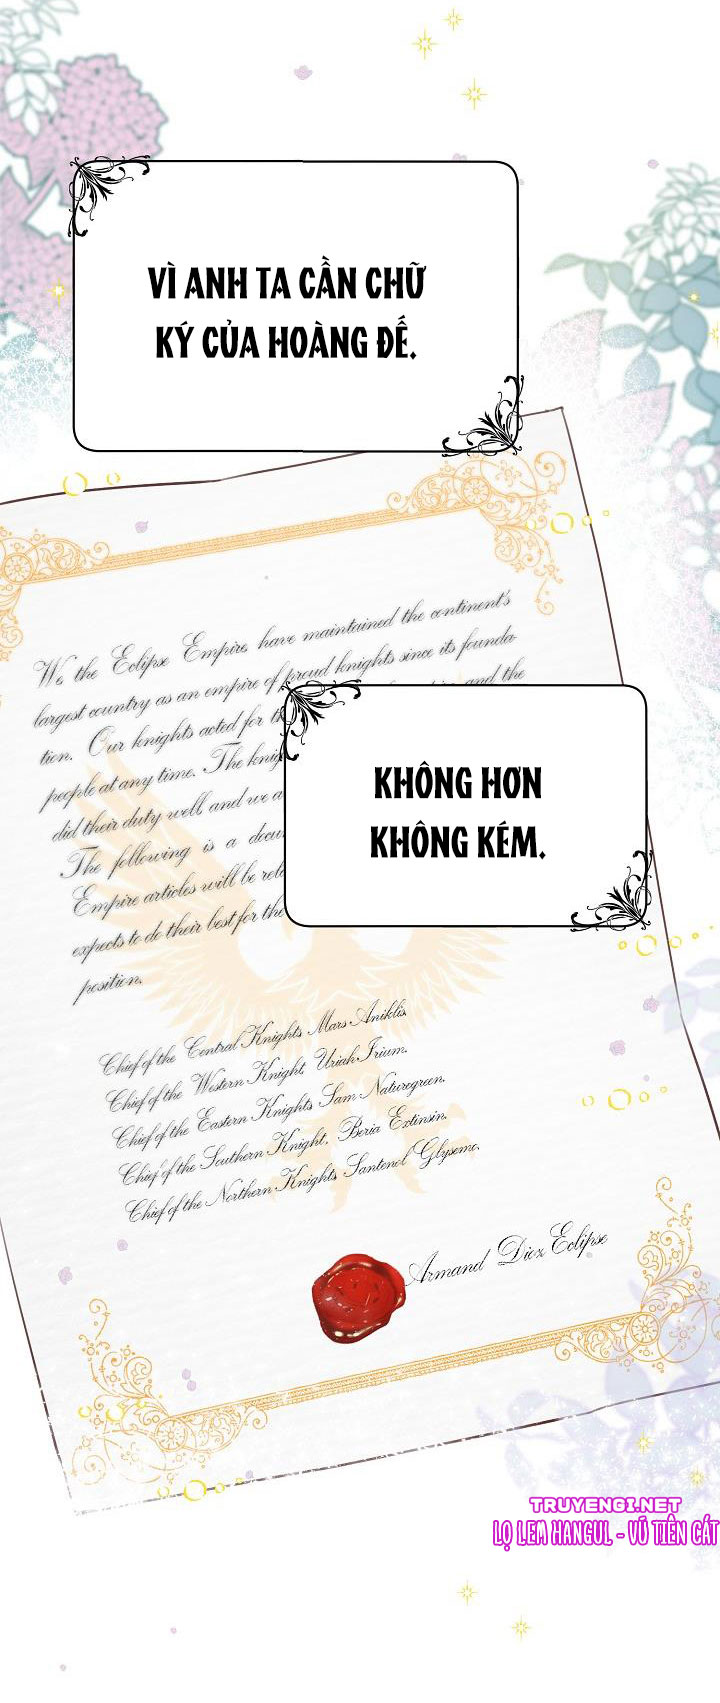 VÌ ANH TA CẦN CHỮ
KÝ CỦA HOÀNG ĐẾ.
We, the Eclipse Empire, have maintained the continent's
largest country as an empire of proud knights since its founda-
tion. Our knights acted for th and the
people at any time. The knig
did their duty well and we a
The following is a docu
Empire articles will be rela
expects to do their best for the
position.
KHÔNG HƠN
KHÔNG KÉM.
Chief of the Central Knights, Mars Aniklis.
Chief of the Western Knight, Uriah Irium.
Chief of the Eastern Knights, Sam Naturegreen.
Chief of the Southern Knight, Beria Extinsin.
Chief of the Northern Knights, Santenol Glyseme.
Armand Dioz Eclipse
TRUYENGI.NET
LỌ LEM HANGUL - VÚ TIÊN CÁT